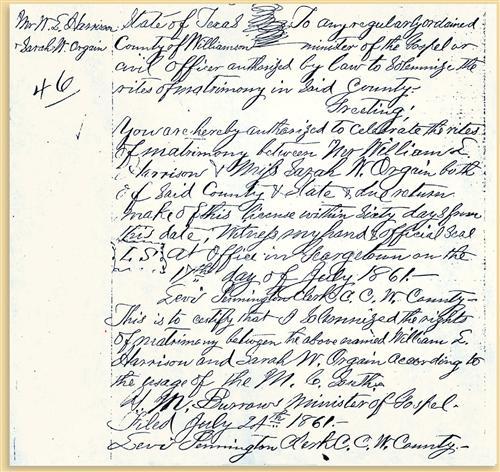 Mr W. E. Harrison
& Sarah W. Orgain
46
State of Texas To any regularly ordained
County of Williamson minister of the Gospel or
civil Officer authorized by law to Solemnize the
rites of matrimony in Said County.
Greeting!
You are hereby authorized to celebrate the rites
of matrimony between Mr William E
Harrison & Miss Sarah W. Orgain both
of Said County & State & due return
make of this License within Sixty days from
this date, Witness my hand & official Seal
L.S. At Office in Georgetown on the
17th day of July 1861.
Levi Pennington Clerk C. C. W. County
This is to certify that I Solemnized the rights
of matrimony between the above named William E.
Harrison and Sarah W. Orgain according to
the usage of the M. E. South
M. Burrow Minister of Gospel.
Filed July 24th 1861.
Levi Pennington Clerk C. C. W. County